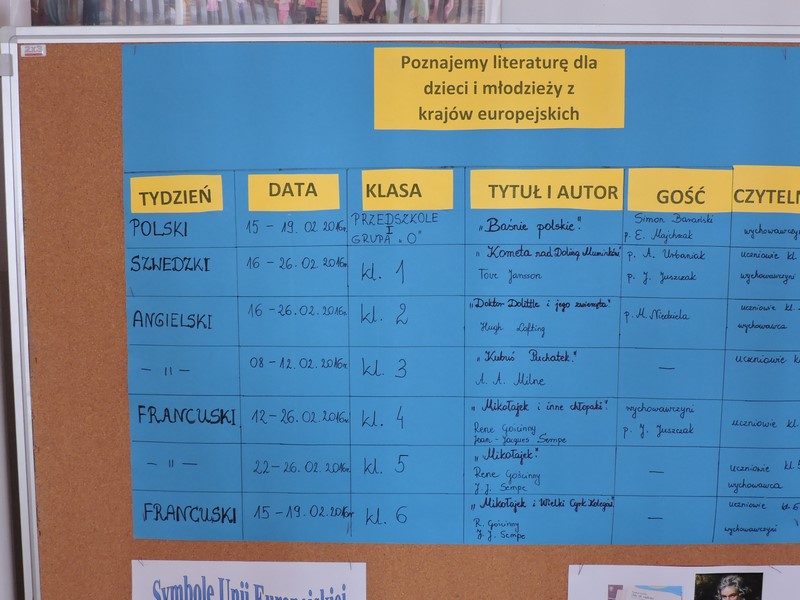 Poznajemy literaturę dla
dzieci i młodzieży z
krajów europejskich
TYDZIEŃ DATA KLASA TYTUŁ I AUTOR GOŚĆ CZYTELN
POLSKI 15 - 19. 02. 2016r. PRZEDSZKOLE I GRUPA „O" „Baśnie polskie". Simon Barański
p. E. Majchrzak
SZWEDZKI 16 - 26. 02. 2016r. kl. 1 „Kometa nad Doliną Muminków"
Tove Jansson
p. A. Urbaniak
p. J. Juszczak
uczniowie kl.
wychowawczyni
ANGIELSKI 16 - 26. 02. 2016r. kl. 2 „Doktor Dolittle i jego zwierzęta"
Hugh Lofting
p. M. Niedziela
uczniowie kl.
wychowawca
— 11 — 08 - 12. 02. 2016r. kl. 3 „Kubuś Puchatek"
A. A. Milne
—
uczniowie k
FRANCUSKI 12 - 26. 02. 2016r. kl. 4 „Mikołajek i inne chłopaki".
Rene Gościnny
Jean - Jacques Sempe
wychowawczyni
p. J. Juszczak
uczniowie kl.
— 11 — 22 - 26. 02. 2016r. kl. 5 „Mikołajek".
Rene Gościnny
J. J. Sempe
—
uczniowie kl.
wychowawca
FRANCUSKI 15 - 19. 02. 2016r kl. 6 „Mikołajek i Wielki Cyrk Kolegaś"
R. Gościnny
J. J. Sempe
—
uczniowie kl. 6
wychowawczyni
Symbole Unii Europejskiej